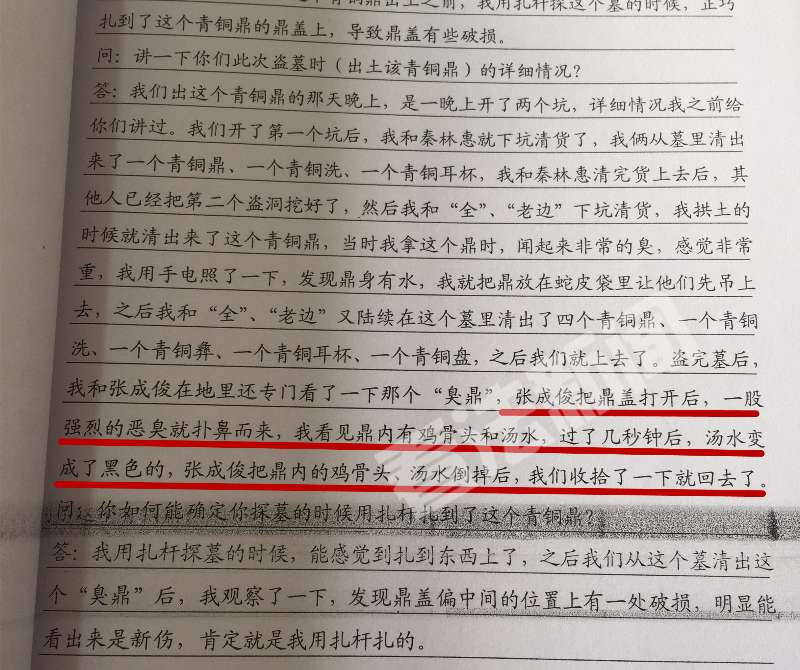 个青铜鼎出土之前，我用扎杆探这个墓的时候，正巧
扎到了这个青铜鼎的鼎盖上，导致鼎盖有些破损。
问：讲一下你们此次盗墓时（出土该青铜鼎）的详细情况？
答：我们出这个青铜鼎的那天晚上，是一晚上开了两个坑，详细情况我之前给
你们讲过。我们开了第一个坑后，我和秦林惠就下坑清货了，我俩从墓里清出
来了一个青铜鼎、一个青铜洗、一个青铜耳杯，我和秦林惠清完货上去后，其
他人已经把第二个盗洞挖好了，然后我和“全”、“老边”下坑清货，我拱土的
时候就清出来了这个青铜鼎，当时我拿这个鼎时，闻起来非常的臭，感觉非常
重，我用手电照了一下，发现鼎身有水，我就把鼎放在蛇皮袋里让他们先吊上
去，之后我和“全”、“老边”又陆续在这个墓里清出了四个青铜鼎、一个青铜
洗、一个青铜彝、一个青铜耳杯、一个青铜盘，之后我们就上去了。盗完墓后，
我和张成俊在地里还专门看了一下那个“臭鼎”，张成俊把鼎盖打开后，一股
强烈的恶臭就扑鼻而来，我看见鼎内有鸡骨头和汤水，过了几秒钟后，汤水变
成了黑色的，张成俊把鼎内的鸡骨头、汤水倒掉后，我们收拾了一下就回去了。
问：你如何能确定你探墓的时候用扎杆扎到了这个青铜鼎？
答：我用扎杆探墓的时候，能感觉到扎到东西上了，之后我们从这个墓清出这
个“臭鼎”后，我观察了一下，发现鼎盖偏中间的位置上有一处破损，明显能
看出来是新伤，肯定就是我用扎杆扎的。